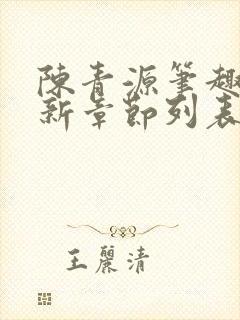 陳青源筆趣
新章節列表
王麗清